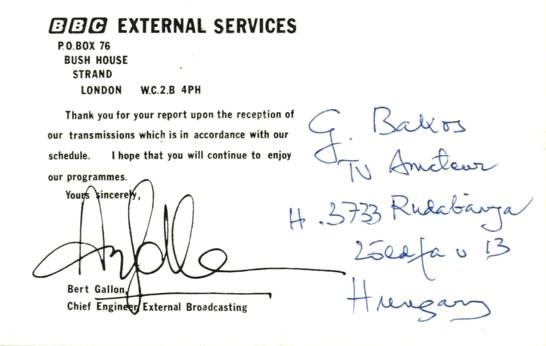 BBC EXTERNAL SERVICES
P.O.BOX 76
BUSH HOUSE
STRAND
LONDON W.C.2.B 4PH
Thank you for your report upon the reception of
our transmissions which is in accordance with our
schedule. I hope that you will continue to enjoy
our programmes.
Yours sincerely,
Bert Gallon,
Chief Engineer External Broadcasting
G. Bakos
TV Amateur
H.3733 Rudabánya
13
Hungary